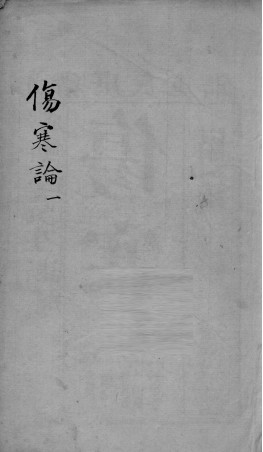 傷寒論一